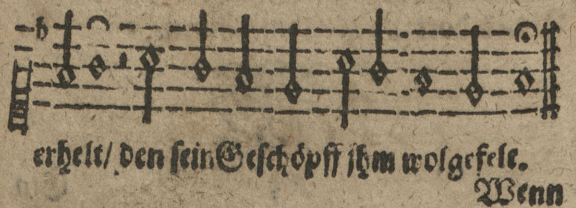 erhelt/ den sein Geschöpff jhm wolgefelt.
Wenn